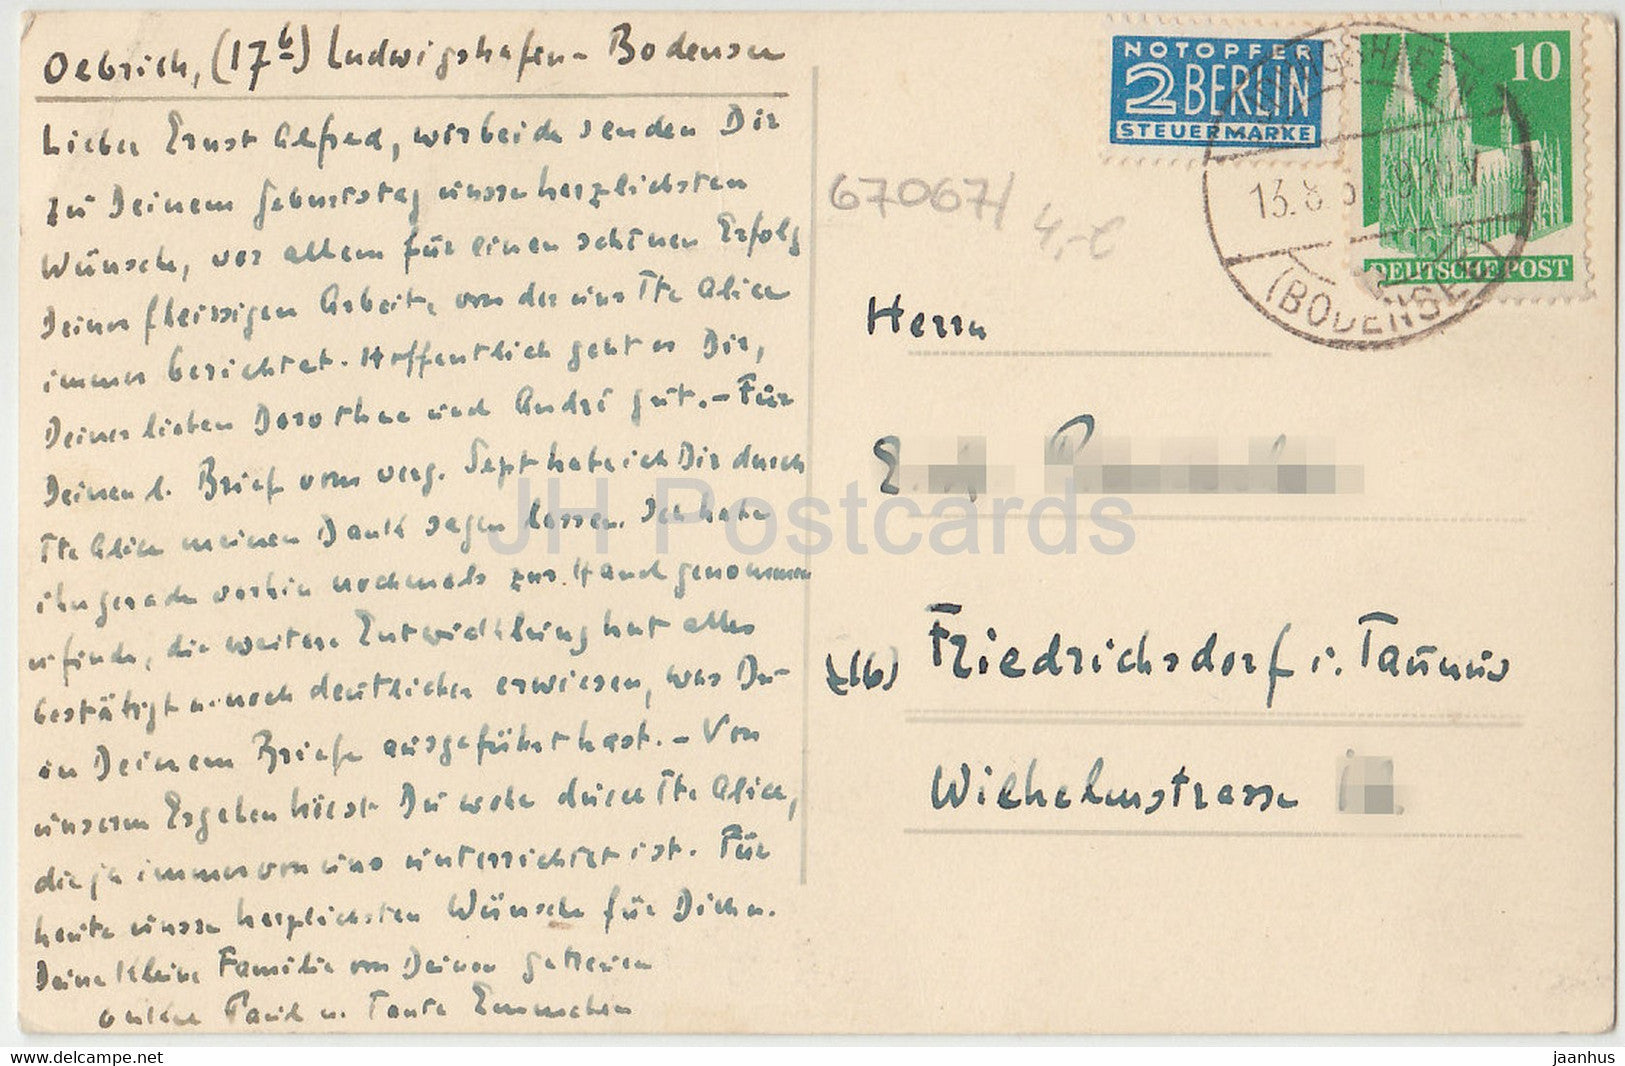 Oebrich, (17b) Ludwigshafen-Bodensee
Lieber Ernst Alfred, wir beide senden Dir
zu Deinem Geburtstag unsere herzlichsten
Wünsche, vor allem für einen schönen Erfolg
Deiner fleissigen Arbeit, von der uns Tte Alice
immer berichtet. Hoffentlich geht es Dir,
Deiner lieben Dorothee und André gut. - Für
Deinen l. Brief vom verg. Sept habe ich Dir durch
Tte Alice meinen Dank sagen lassen. Ich habe
ihn gerade vorhin nochmals zur Hand genommen
u. finde, die weitere Entwicklung hat alles
bestätigt u. noch deutlicher erwiesen, was Du
in Deinem Briefe ausgeführt hast. - Von
unserm Ergehen hörst Du wohl durch Tte Alice,
die ja immer von uns unterrichtet ist. Für
heute unsere herzlichsten Wünsche für Dich u.
Deine kleine Familie von Deinen getreuen
Onkel Paul u. Tante Emmchen
NOTOPFER
2 BERLIN
STEUERMARKE
10
DEUTSCHE POST
LUDWIGSHAFEN
13.8.5
(BODENSEE)
67067/
4,-€
Herrn
(16) Friedrichsdorf i. Taunus
Wilhelmstrasse
JH Postcards
www.delcampe.net
jaanhus